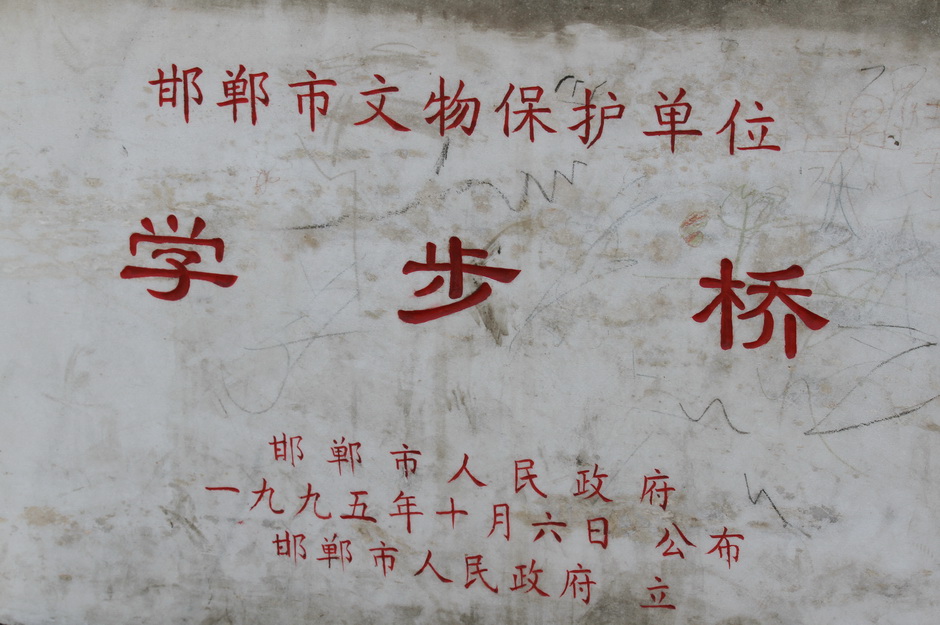 邯郸市文物保护单位
学步桥
邯郸市人民政府
一九九五年十月六日 公布
邯郸市人民政府 立